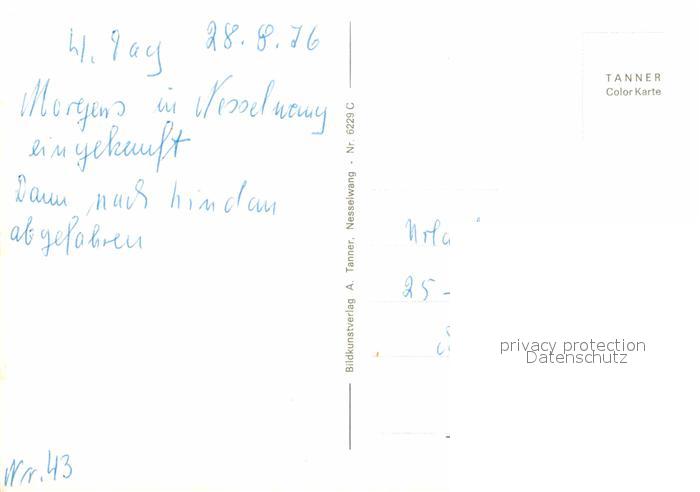 4. Tag 28.8.76
Morgens in Nesselwang
eingekauft
Dann nach Lindau
abgefahren
Nr. 43
Bildkunstverlag A. Tanner, Nesselwang - Nr. 6229 C
TANNER
Color Karte
Urla
25 -
privacy protection
Datenschutz